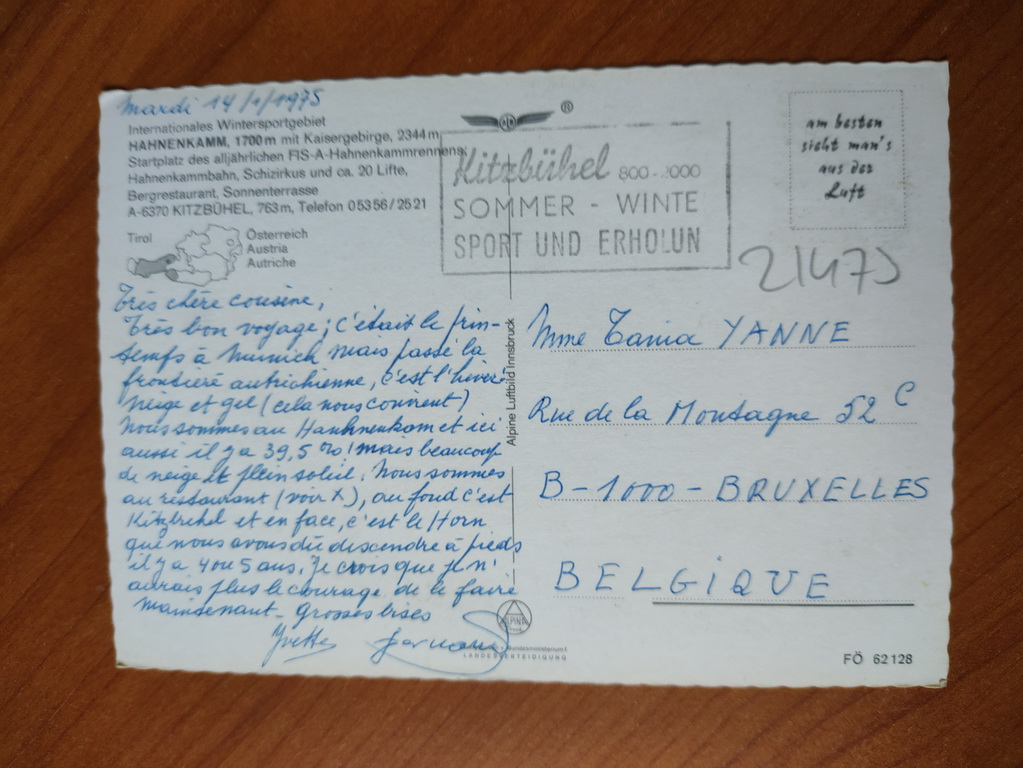 mardi 14/1/1975
Internationales Wintersportgebiet
HAHNENKAMM, 1700 m mit Kaisergebirge, 2344 m
Startplatz des alljährlichen FIS-A-Hahnenkammrennens
Hahnenkammbahn, Schizirkus und ca. 20 Lifte,
Bergrestaurant, Sonnenterrasse
A-6370 KITZBÜHEL, 763 m, Telefon 0 53 56 / 25 21
Tirol
Österreich
Austria
Autriche
®
Kitzbühel 800-2000
SOMMER - WINTE
SPORT UND ERHOLUN
am besten
sieht man's
aus der
Luft
21475
Très chère cousine,
Très bon voyage; c'était le prin-
temps à Munich mais passé la
frontière autrichienne, c'est l'hiver:
neige et gel (cela nous convient)
Nous sommes au Hahnenkam et ici
aussi il y a 39,5 %! mais beaucoup
de neige et plein soleil. Nous sommes
au restaurant (voir X), au fond c'est
Kitzbuhel et en face, c'est le Horn
que nous avons dû descendre à pieds
il y a 4 ou 5 ans. Je crois que je n'
aurais plus le courage de le faire
maintenant. Grosses bises
Yvette
Alpine Luftbild Innsbruck
Mme Tania YANNE
Rue de la Montagne 52 C
B-1000-BRUXELLES
BELGIQUE
ALPINE
LANDESVERTEIDIGUNG
FÖ 62128